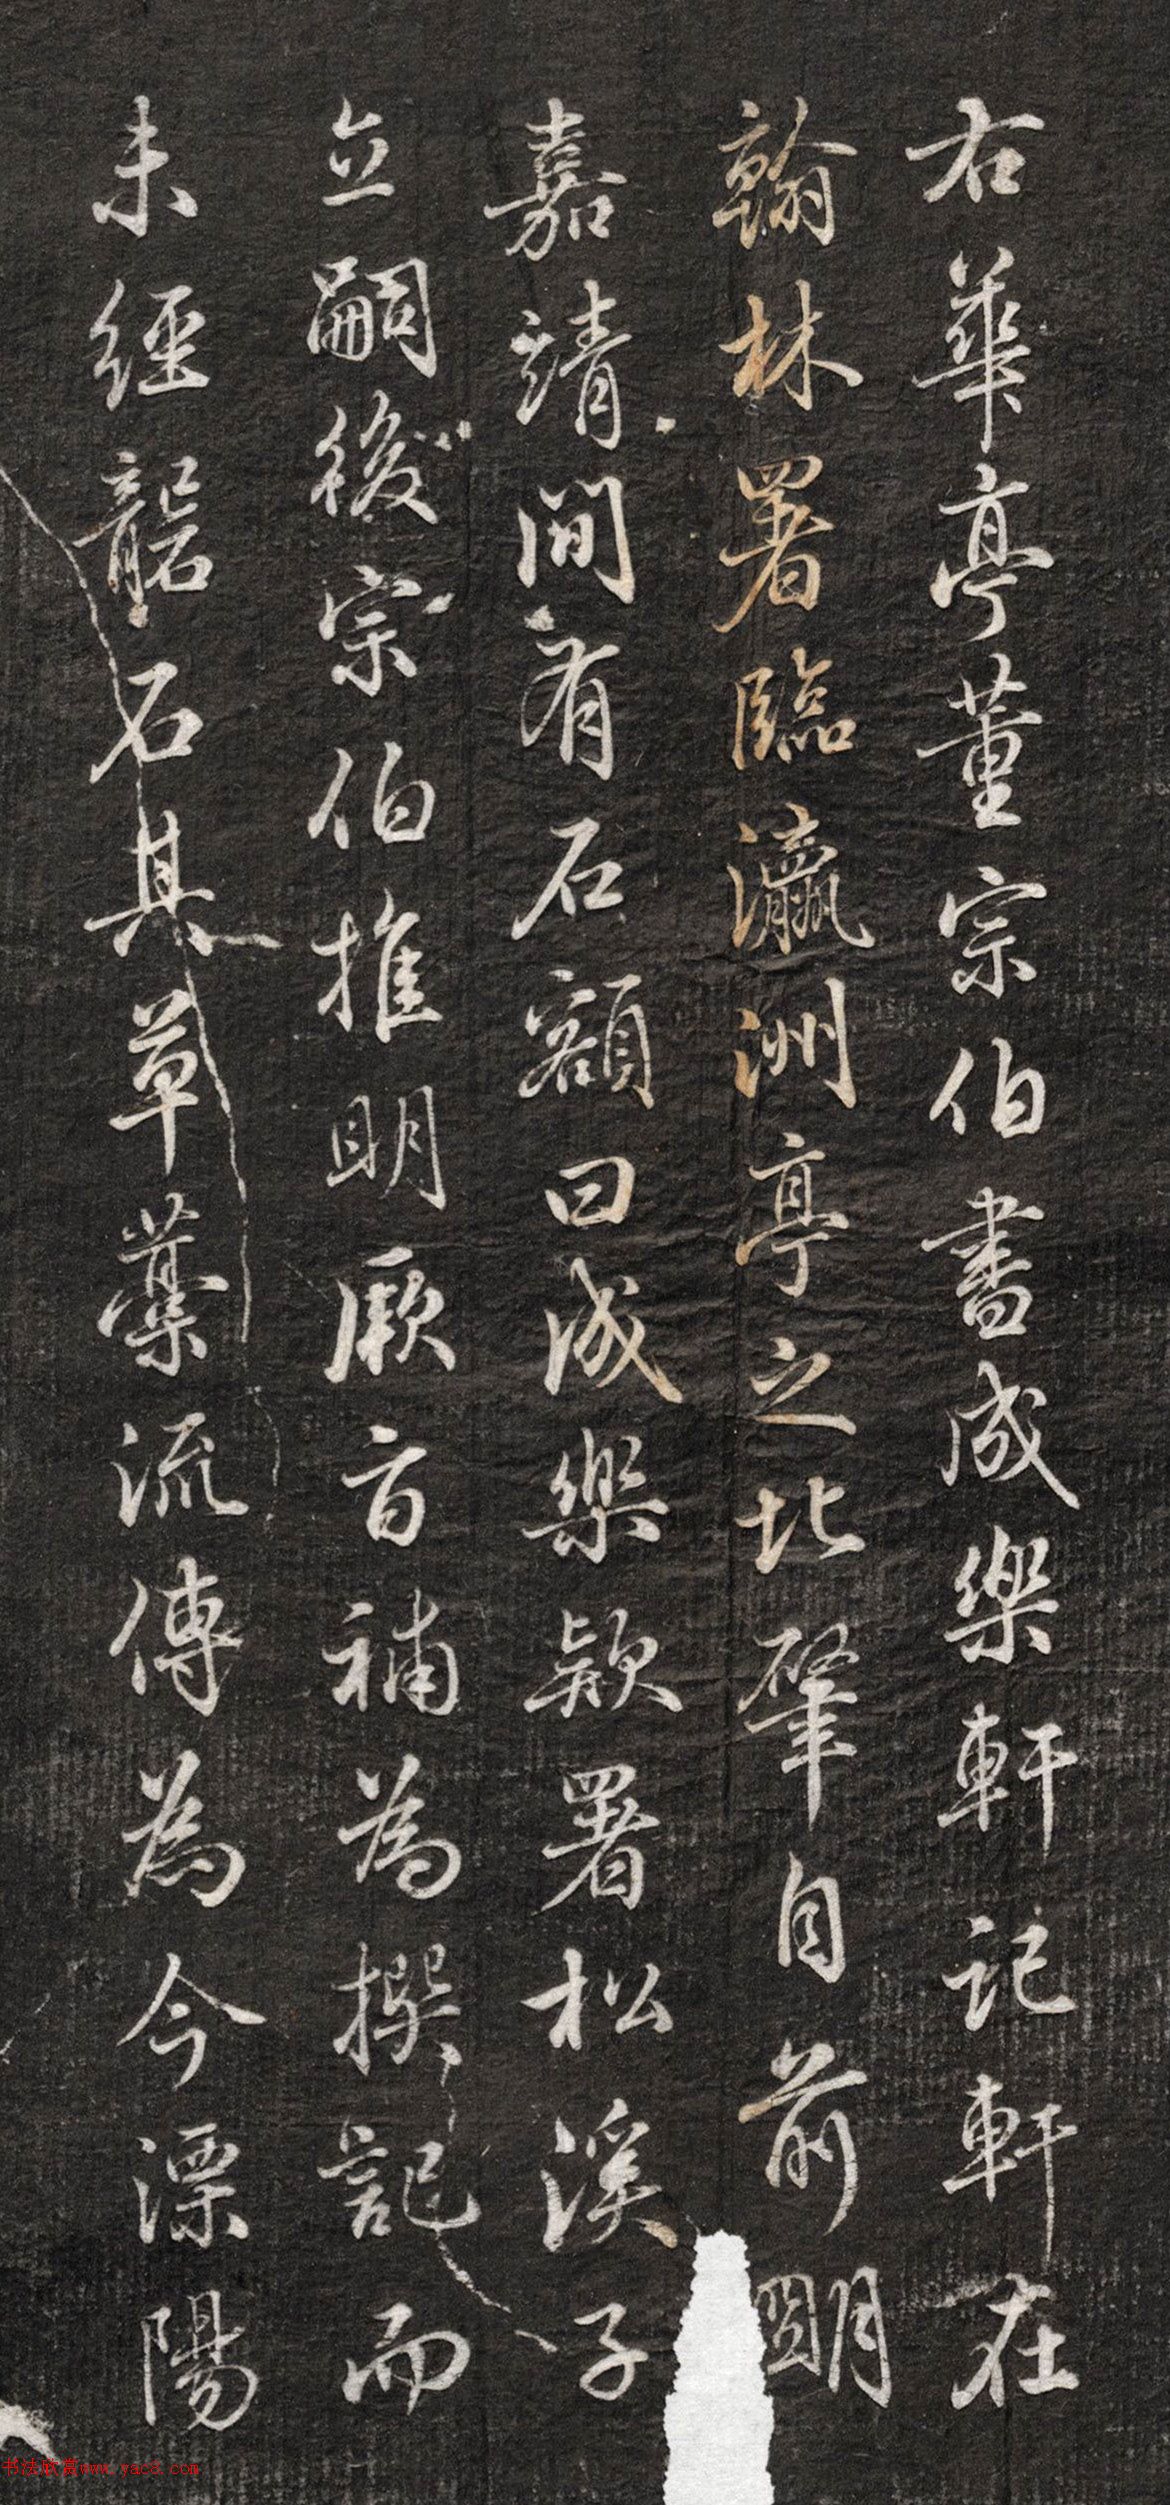 右華亭董宗伯書成樂軒記軒在
翰林署臨瀛洲亭之北肇自前明
嘉靖間有石額曰成樂款署松溪子
立嗣後宗伯推明厥旨補為撰記而
未經礱石其草藳流傳為今溧陽
书法欣赏www.yac8.com